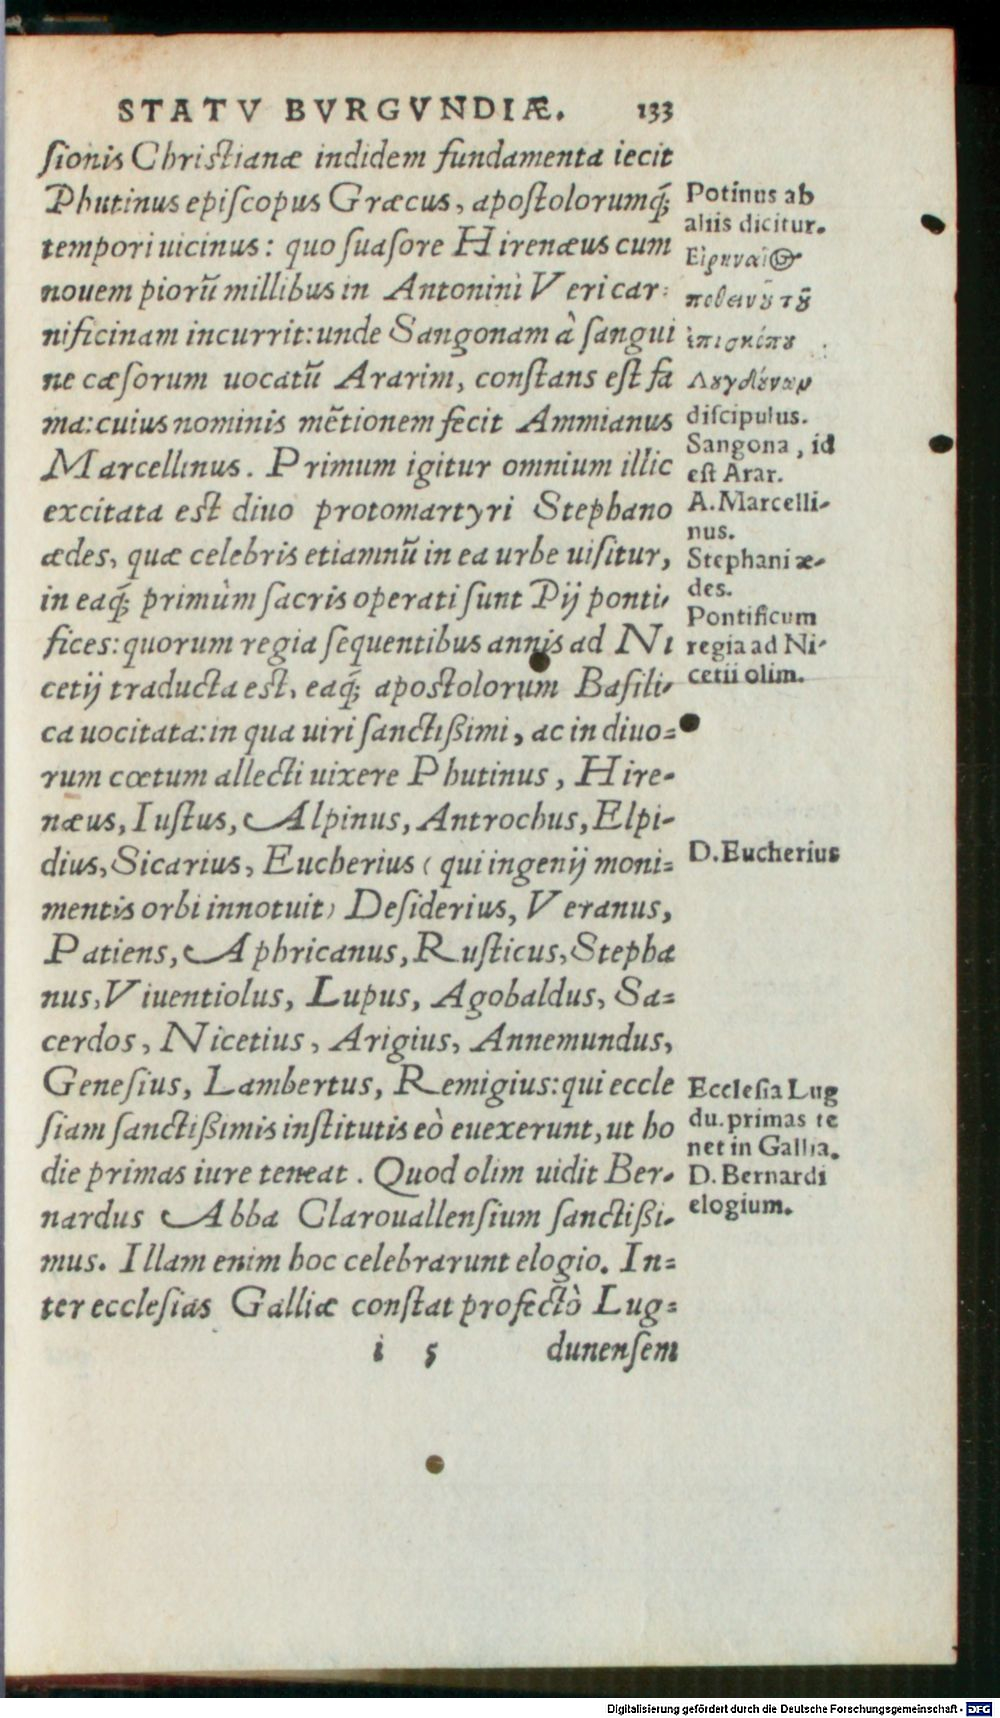 STATV BVRGVNDIÆ. 133
ſionis Chriſtianæ indidem fundamenta iecit
Phutinus epiſcopus Græcus, apoſtolorumq́;
tempori uicinus: quo ſuaſore Hirenæus cum
nouem piorũ millibus in Antonini Veri car-
nificinam incurrit: unde Sangonam à ſangui
ne cæſorum uocatũ Ararim, conſtans eſt fa
ma: cuius nominis mẽtionem fecit Ammianus
Marcellinus. Primum igitur omnium illic
excitata eſt diuo protomartyri Stephano
ædes, quæ celebris etiamnũ in ea urbe uiſitur,
in eaq́; primùm ſacris operati ſunt Pij ponti-
fices: quorum regia ſequentibus annis ad Ni
cetij traducta eſt, eaq́; apoſtolorum Baſili-
ca uocitata: in qua uiri ſanctißimi, ac in diuo=
rum cœtum allecti uixere Phutinus, Hire-
næus, Iuſtus, Alpinus, Antrochus, Elpi-
dius, Sicarius, Eucherius (qui ingenij moni=
mentis orbi innotuit) Deſiderius, Veranus,
Patiens, Aphricanus, Ruſticus, Stepha
nus, Viuentiolus, Lupus, Agobaldus, Sa=
cerdos, Nicetius, Arigius, Annemundus,
Geneſius, Lambertus, Remigius: qui eccle
ſiam ſanctißimis inſtitutis eò euexerunt, ut ho
die primas iure teneat. Quod olim uidit Ber-
nardus Abba Clarouallenſium ſanctißi-
mus. Illam enim hoc celebrarunt elogio. In=
ter eccleſias Galliæ conſtat profectò Lug=
i 5 dunenſem
Potinus ab
aliis dicitur.
Εἰρηναῖος
ποθεινοῦ τοῦ
ἐπισκόπου
Λουγδούνων
diſcipulus.
Sangona, id
eſt Arar.
A. Marcelli-
nus.
Stephani æ-
des.
Pontificum
regia ad Ni-
cetii olim.
D. Eucherius
Eccleſia Lug
du. primas te
net in Gallia.
D. Bernardi
elogium.
Digitalisierung gefördert durch die Deutsche Forschungsgemeinschaft - DFG